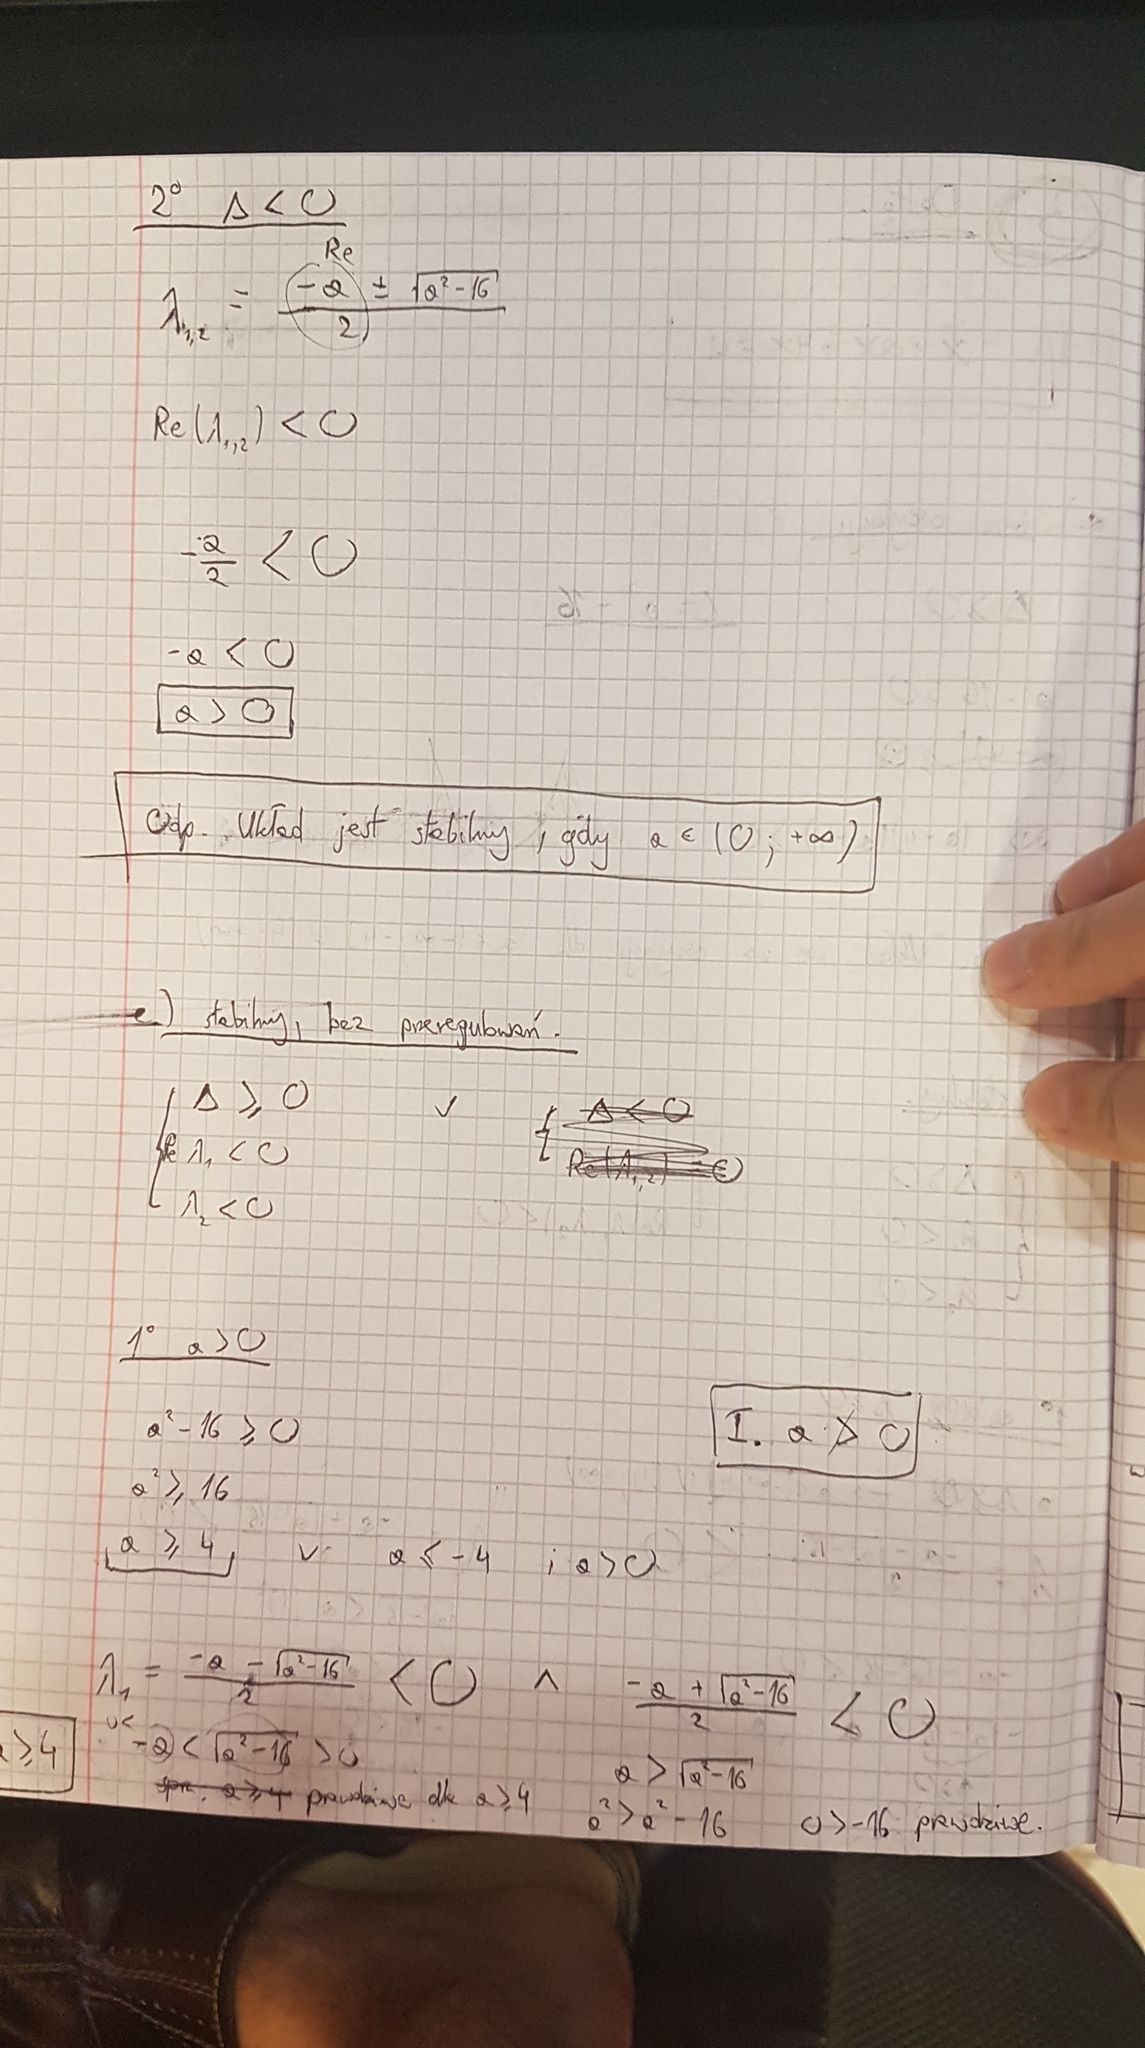 2° Δ < 0
Re
λ₁,₂ = (-a ± √(a²-16)) / 2
Re(λ₁,₂) < 0
-a/2 < 0
-a < 0
a > 0
Odp. Układ jest stabilny, gdy a ∈ (0; +∞)
e) stabilny, bez przeregulowań.
Δ ≥ 0 ∨ Δ < 0
Re λ₁ < 0 Re(λ₁,₂) = 0
λ₂ < 0
1° a > 0
a² - 16 ≥ 0
I. a > 0
a² ≥ 16
a ≥ 4 ∨ a ≤ -4 i a > 0
λ₁ = (-a - √(a²-16)) / 2 < 0 ∧ (-a + √(a²-16)) / 2 < 0
a ≥ 4
0< -a < √(a²-16) > 0 a > √(a²-16)
spr. a ≥ 4 prawdziwe dla a ≥ 4 a² > a² - 16 0 > -16 prawdziwe.